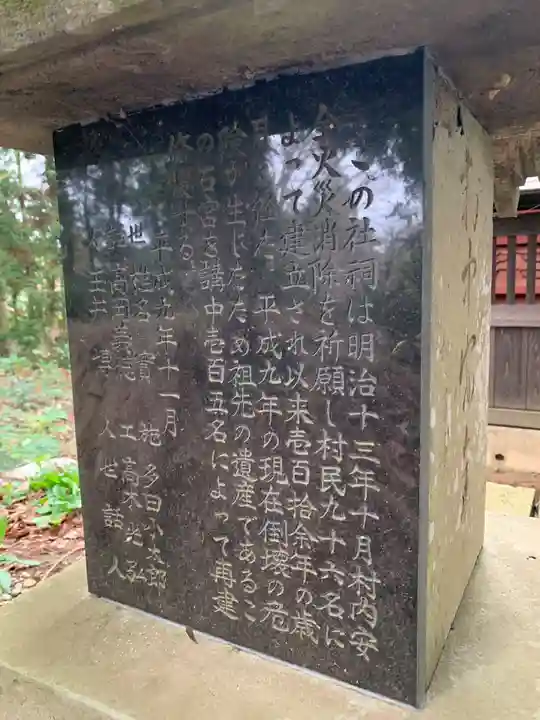 この社祠は明治十三年十月村内安
全火災消除を祈願し村民九十六名に
よって建立され以来壱百拾余年の歳
月を経た 平成九年の現在倒壊の危
険が生じたため祖先の遺産であるこ
の石宮を講中壱百五名によって再建
修復する
平成九年十一月
世 椎名 實 施 多田小太郎
高田義徳 工 高木光弘
人 玉井 人 世話人